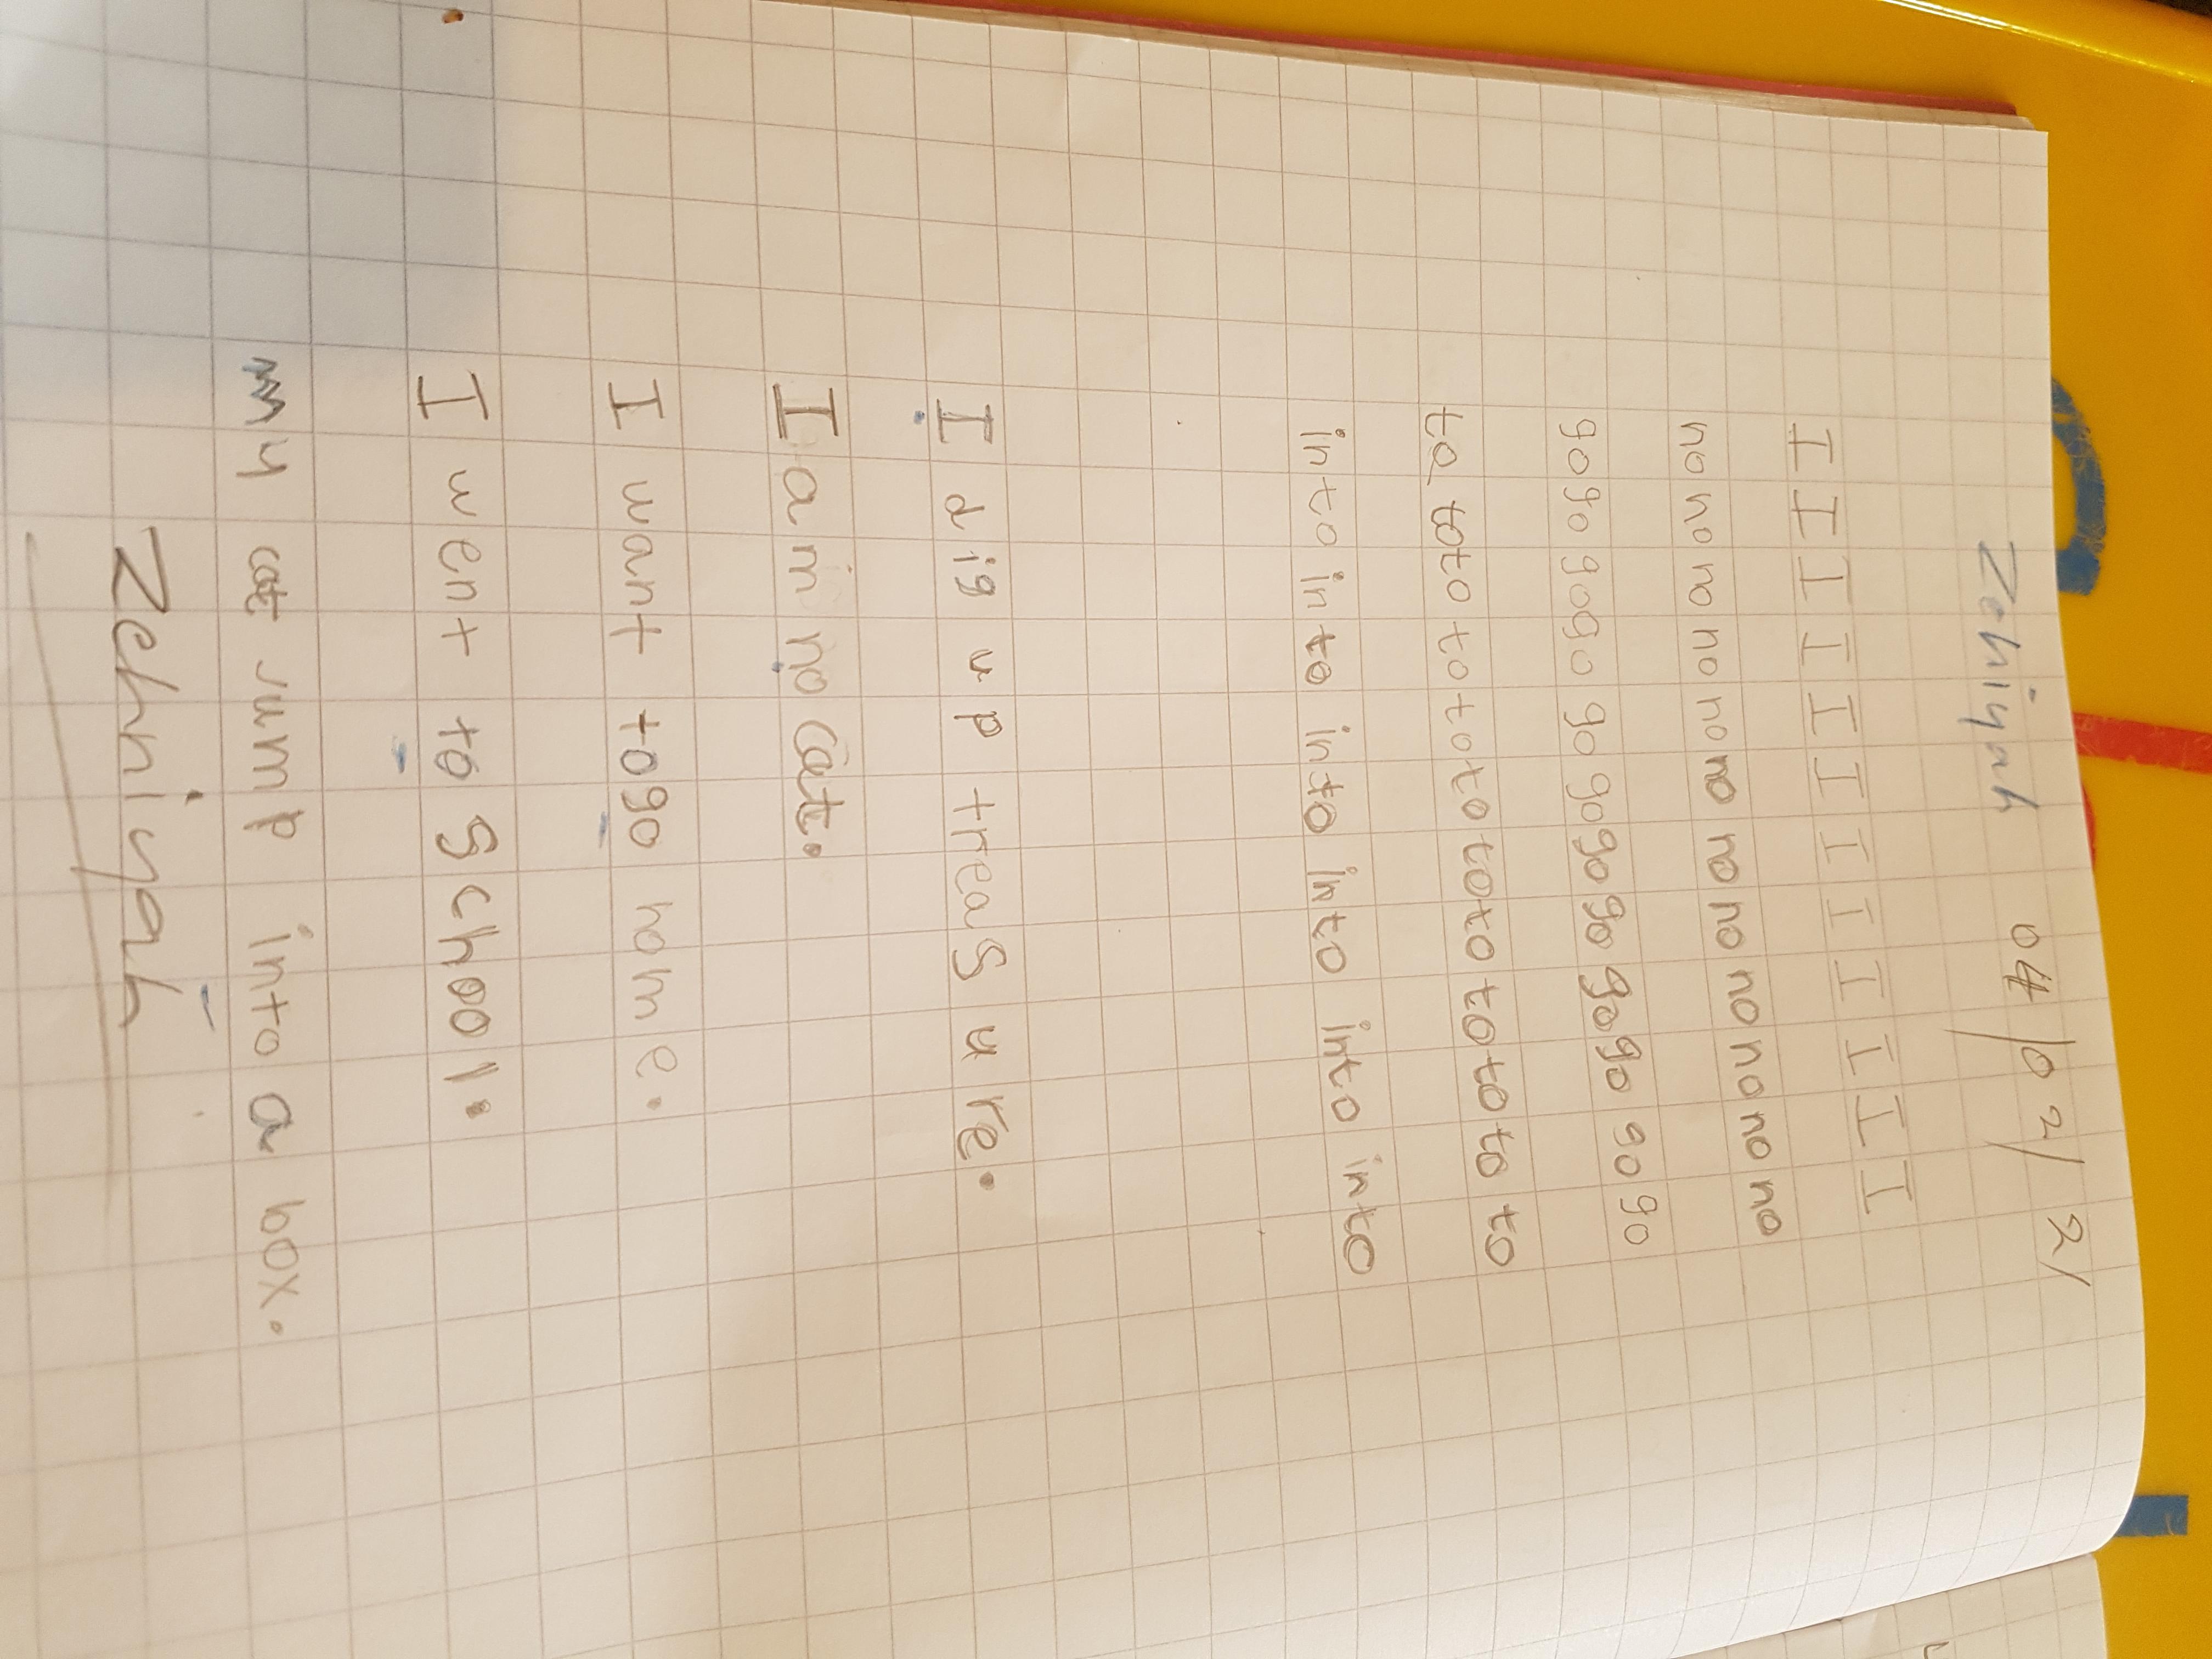 Zehiyah 04/02/21
I I I I I I I I I I I I
no no no no no no no no no no no no
go go go go go go go go go go go go
to to to to to to to to to to to to
into into into into into into
I dig up treasure.
I am no cat.
I want to go home.
I went to school.
my cat jump into a box.
Zehniyah